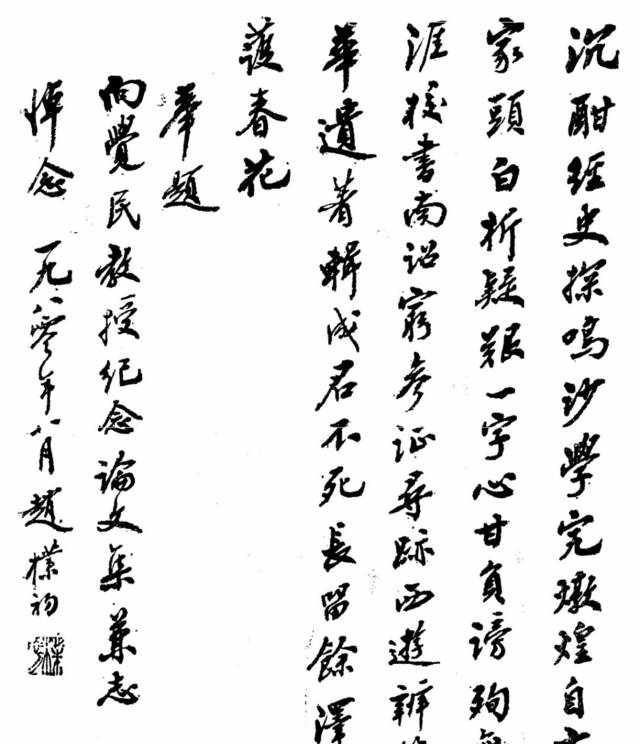 沉酣經史探鳴沙學究燉煌自
家頭白析疑艱一字心甘負謗殉
涯校書南詔窮參證尋跡西遊辨
華遺著輯成君不死長留餘澤
護春花
奉題
向覺民教授纪念論文集兼志
悼念 一九八零年八月 趙樸初